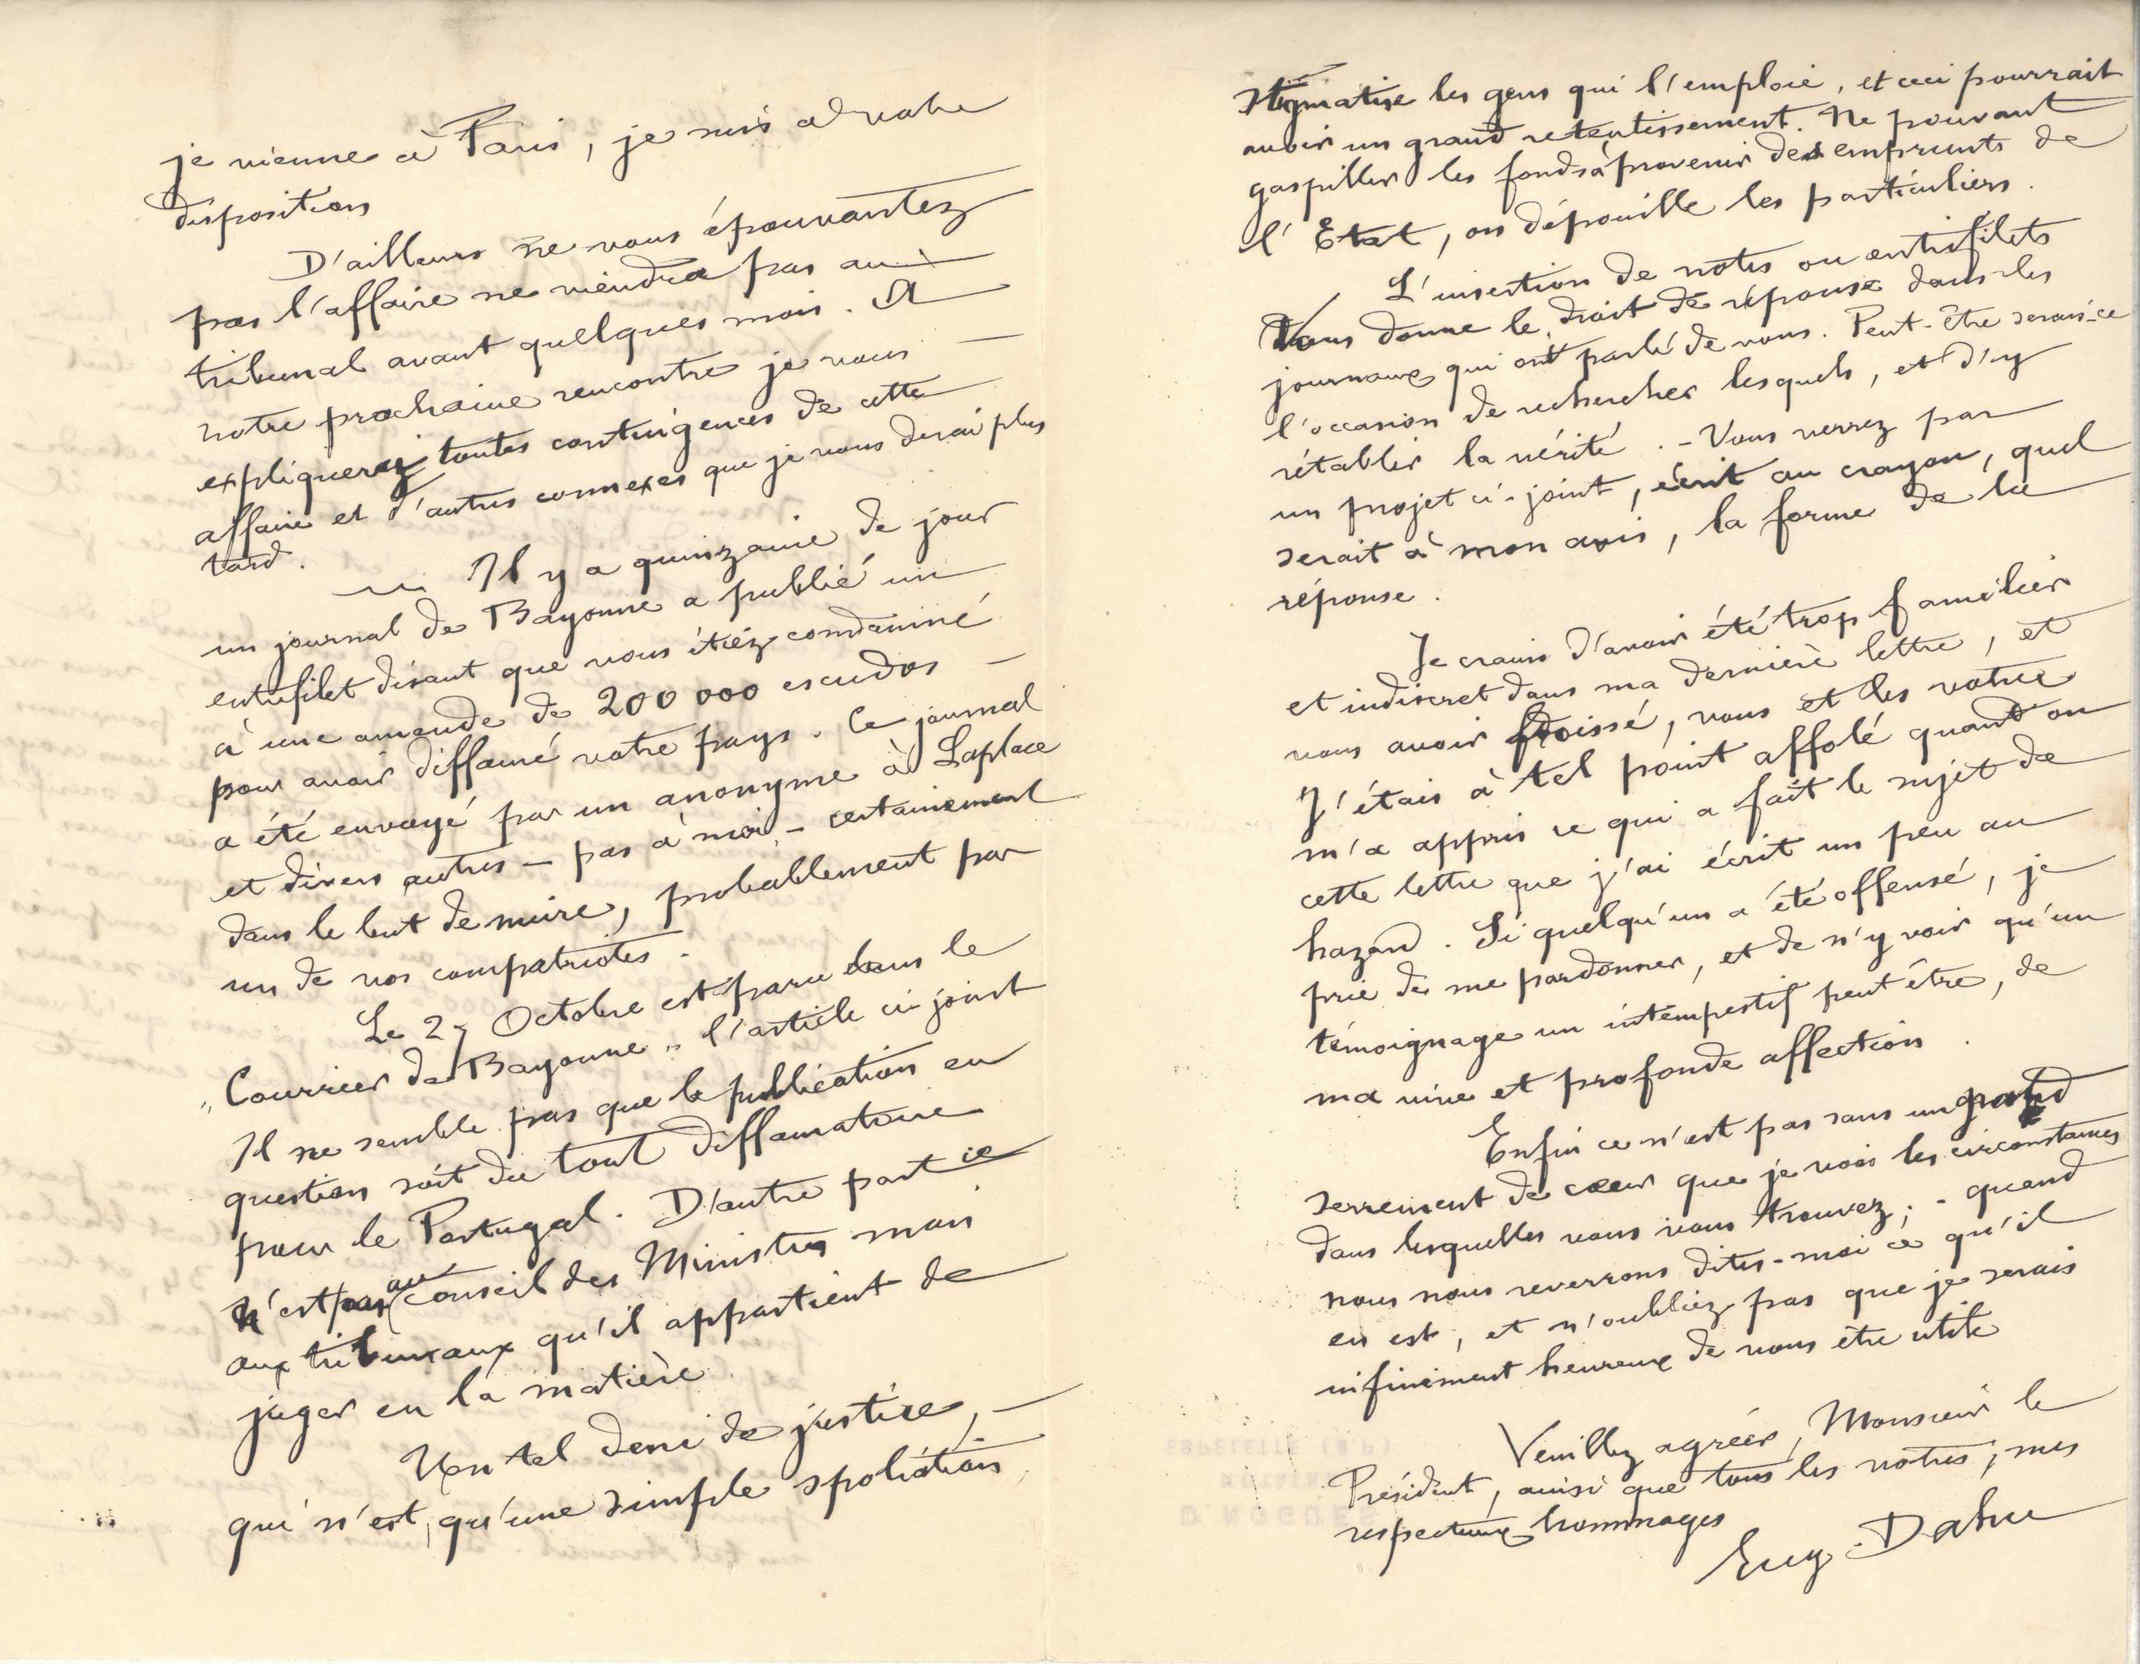 je vienne à Paris, je suis à votre
disposition
D'ailleurs ne vous épouvantez
pas l'affaire ne viendra pas au
tribunal avant quelques mois. A
notre prochaine rencontre je vous
expliquerai toutes contingences de cette
affaire et d'autres connexes que je vous dirai plus
tard.
Il y a quinzaine de jour
un journal de Bayonne a publié un
entrefilet disant que vous étiez condamné
à une amende de 200 000 escudos
pour avoir diffamé votre pays. Ce journal
a été envoyé par un anonyme à Laplace
et divers autres — pas à moi — certainement
dans le but de nuire, probablement par
un de vos compatriotes.
Le 27 Octobre est paru dans le
"Courrier de Bayonne" l'article ci joint
Il ne semble pas que la publication en
question soit du tout diffamatoire
pour le Portugal. D'autre part ce
n'est pas au conseil des Ministres mais
aux tribunaux qu'il appartient de
juger en la matière.
Un tel deni de justice,
qui n'est, qu'une simple spoliation
stigmatise les gens qui l'emploie, et ceci pourrait
avoir un grand retentissement. Ne pouvant
gaspiller les fonds à provenir des emprunts de
l'Etat, on dépouille les particuliers.
L'insertion de notes ou entrefilets
Vous donne le droit de réponse dans les
journaux qui ont parlé de vous. Peut-être serais-ce
l'occasion de rechercher lesquels, et d'y
rétablir la vérité. - Vous verrez par
un projet ci-joint, écrit au crayon, quel
serait à mon avis, la forme de la
réponse.
Je crains d'avoir été trop familier
et indiscret dans ma dernière lettre, et
vous avoir froissé, vous et les votres
J'étais à tel point affolé quand on
m'a appris ce qui a fait le sujet de
cette lettre que j'ai écrit un peu au
hazard. Si quelqu'un a été offensé, je
prie de me pardonner, et de n'y voir qu'un
témoignage un intempestif peut être, de
ma vive et profonde affection.
Enfin ce n'est pas sans un grand
serrement de cœur que je vois les circonstances
dans lesquelles vous vous trouvez; - quand
nous nous reverrons dites-moi ce qu'il
en est, et n'oubliez pas que je serais
infiniment heureux de vous être utile
Veuillez agréer, Monsieur le
Président, ainsi que tous les votres, mes
respectueux hommages
Eug. Dahu